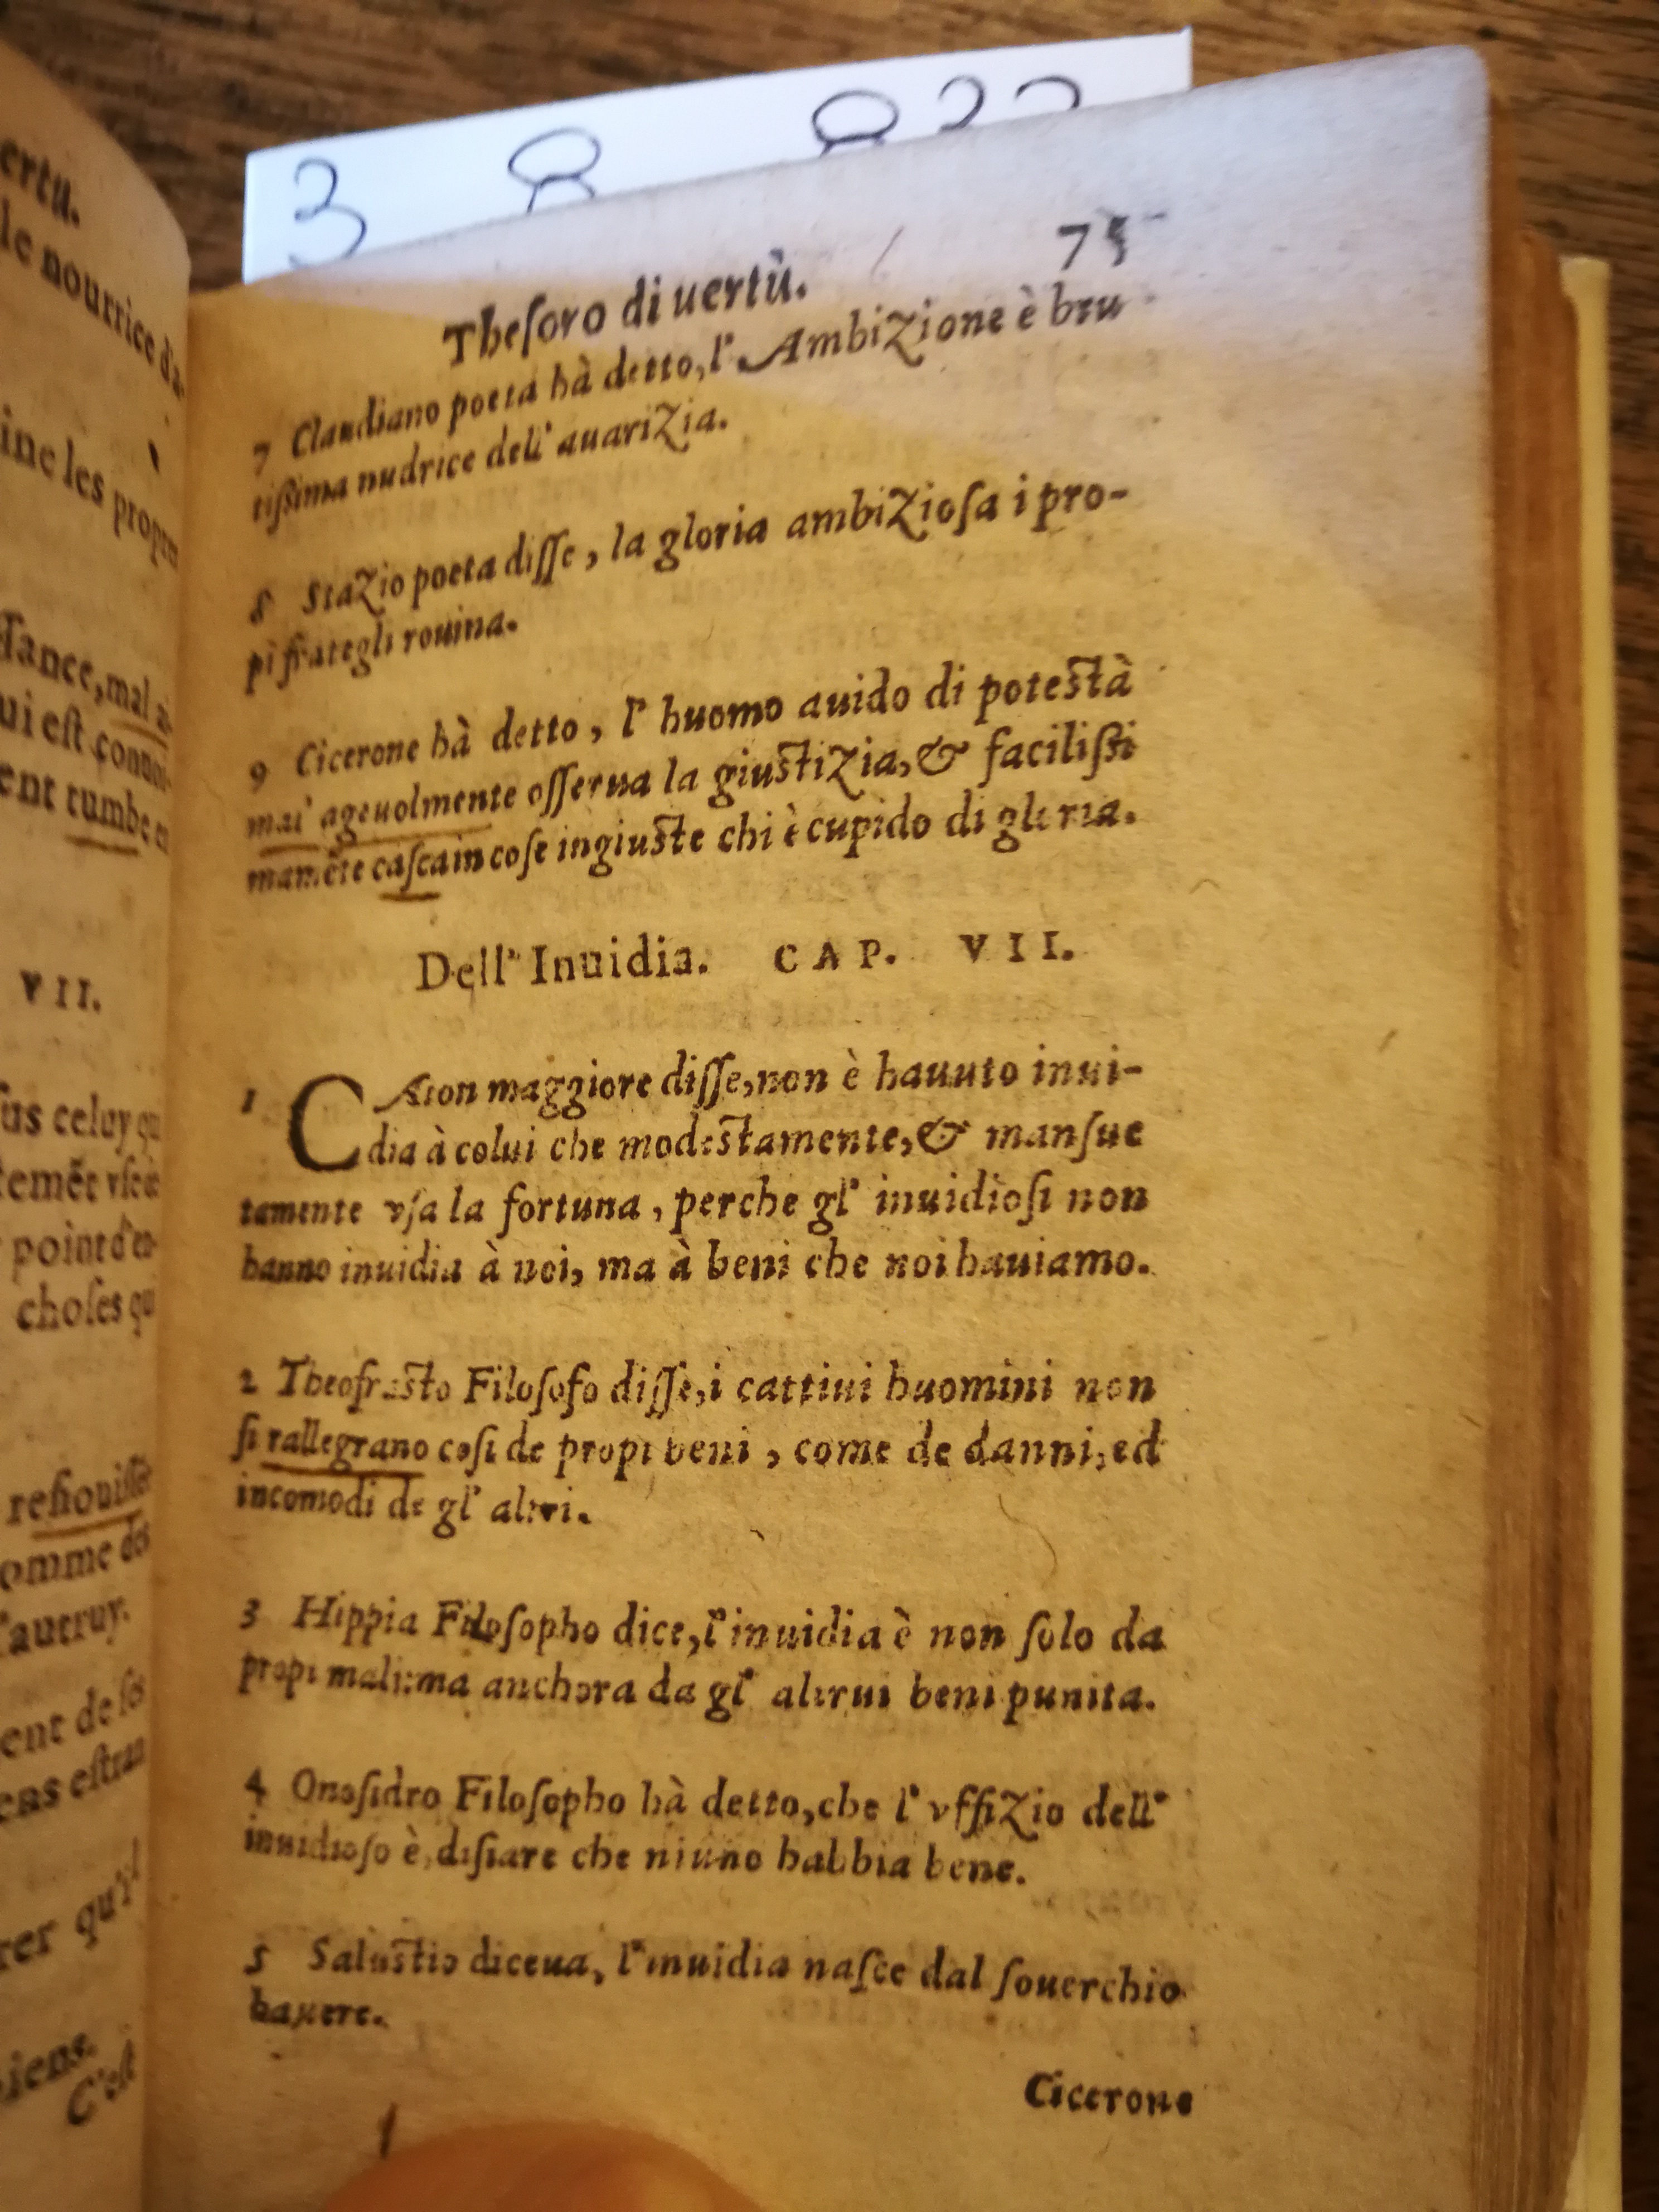 3 8 8 2 2
ertu.
le nourrice d'a-
ine les propres
sance, mal
ui est conuoi-
ent tumbe
VII.
celuy qui
temẽt vse
point d'en-
choses qui
resiouissẽt
omme des
d'autruy.
ent de ses
estran
rer qu'il
biens.
C'est
Thesoro di uertù. 75
7 Claudiano poeta hà detto, l' Ambizione è bru
tissima nudrice dell' auarizia.
8 Stazio poeta disse, la gloria ambiziosa i pro-
pi frategli rouina.
9 Cicerone hà detto, l' huomo auido di potestà
mai' ageuolmente osserua la giustizia, & facilissi
mamẽte casca in cose ingiuste chi è cupido di gloria.
Dell' Inuidia. CAP. VII.
1 CAton maggiore disse, non è hauuto inui-
dia à colui che modestamente, & mansue
tamente vsa la fortuna, perche gl' inuidiosi non
hanno inuidia à noi, ma à beni che noi hauiamo.
2 Theofrasto Filosofo disse, i cattiui huomini non
si rallegrano cosi de propi beni, come de danni, ed
incomodi de gl' altri.
3 Hippia Filosopho dice, l' inuidia è non solo da
propi mali, ma anchora da gl' altrui beni punita.
4 Onosidro Filosopho hà detto, che l' vffizio dell'
inuidioso è, disiare che niuno habbia bene.
5 Salustio diceua, l' inuidia nasce dal souerchio
hauere.
Cicerone